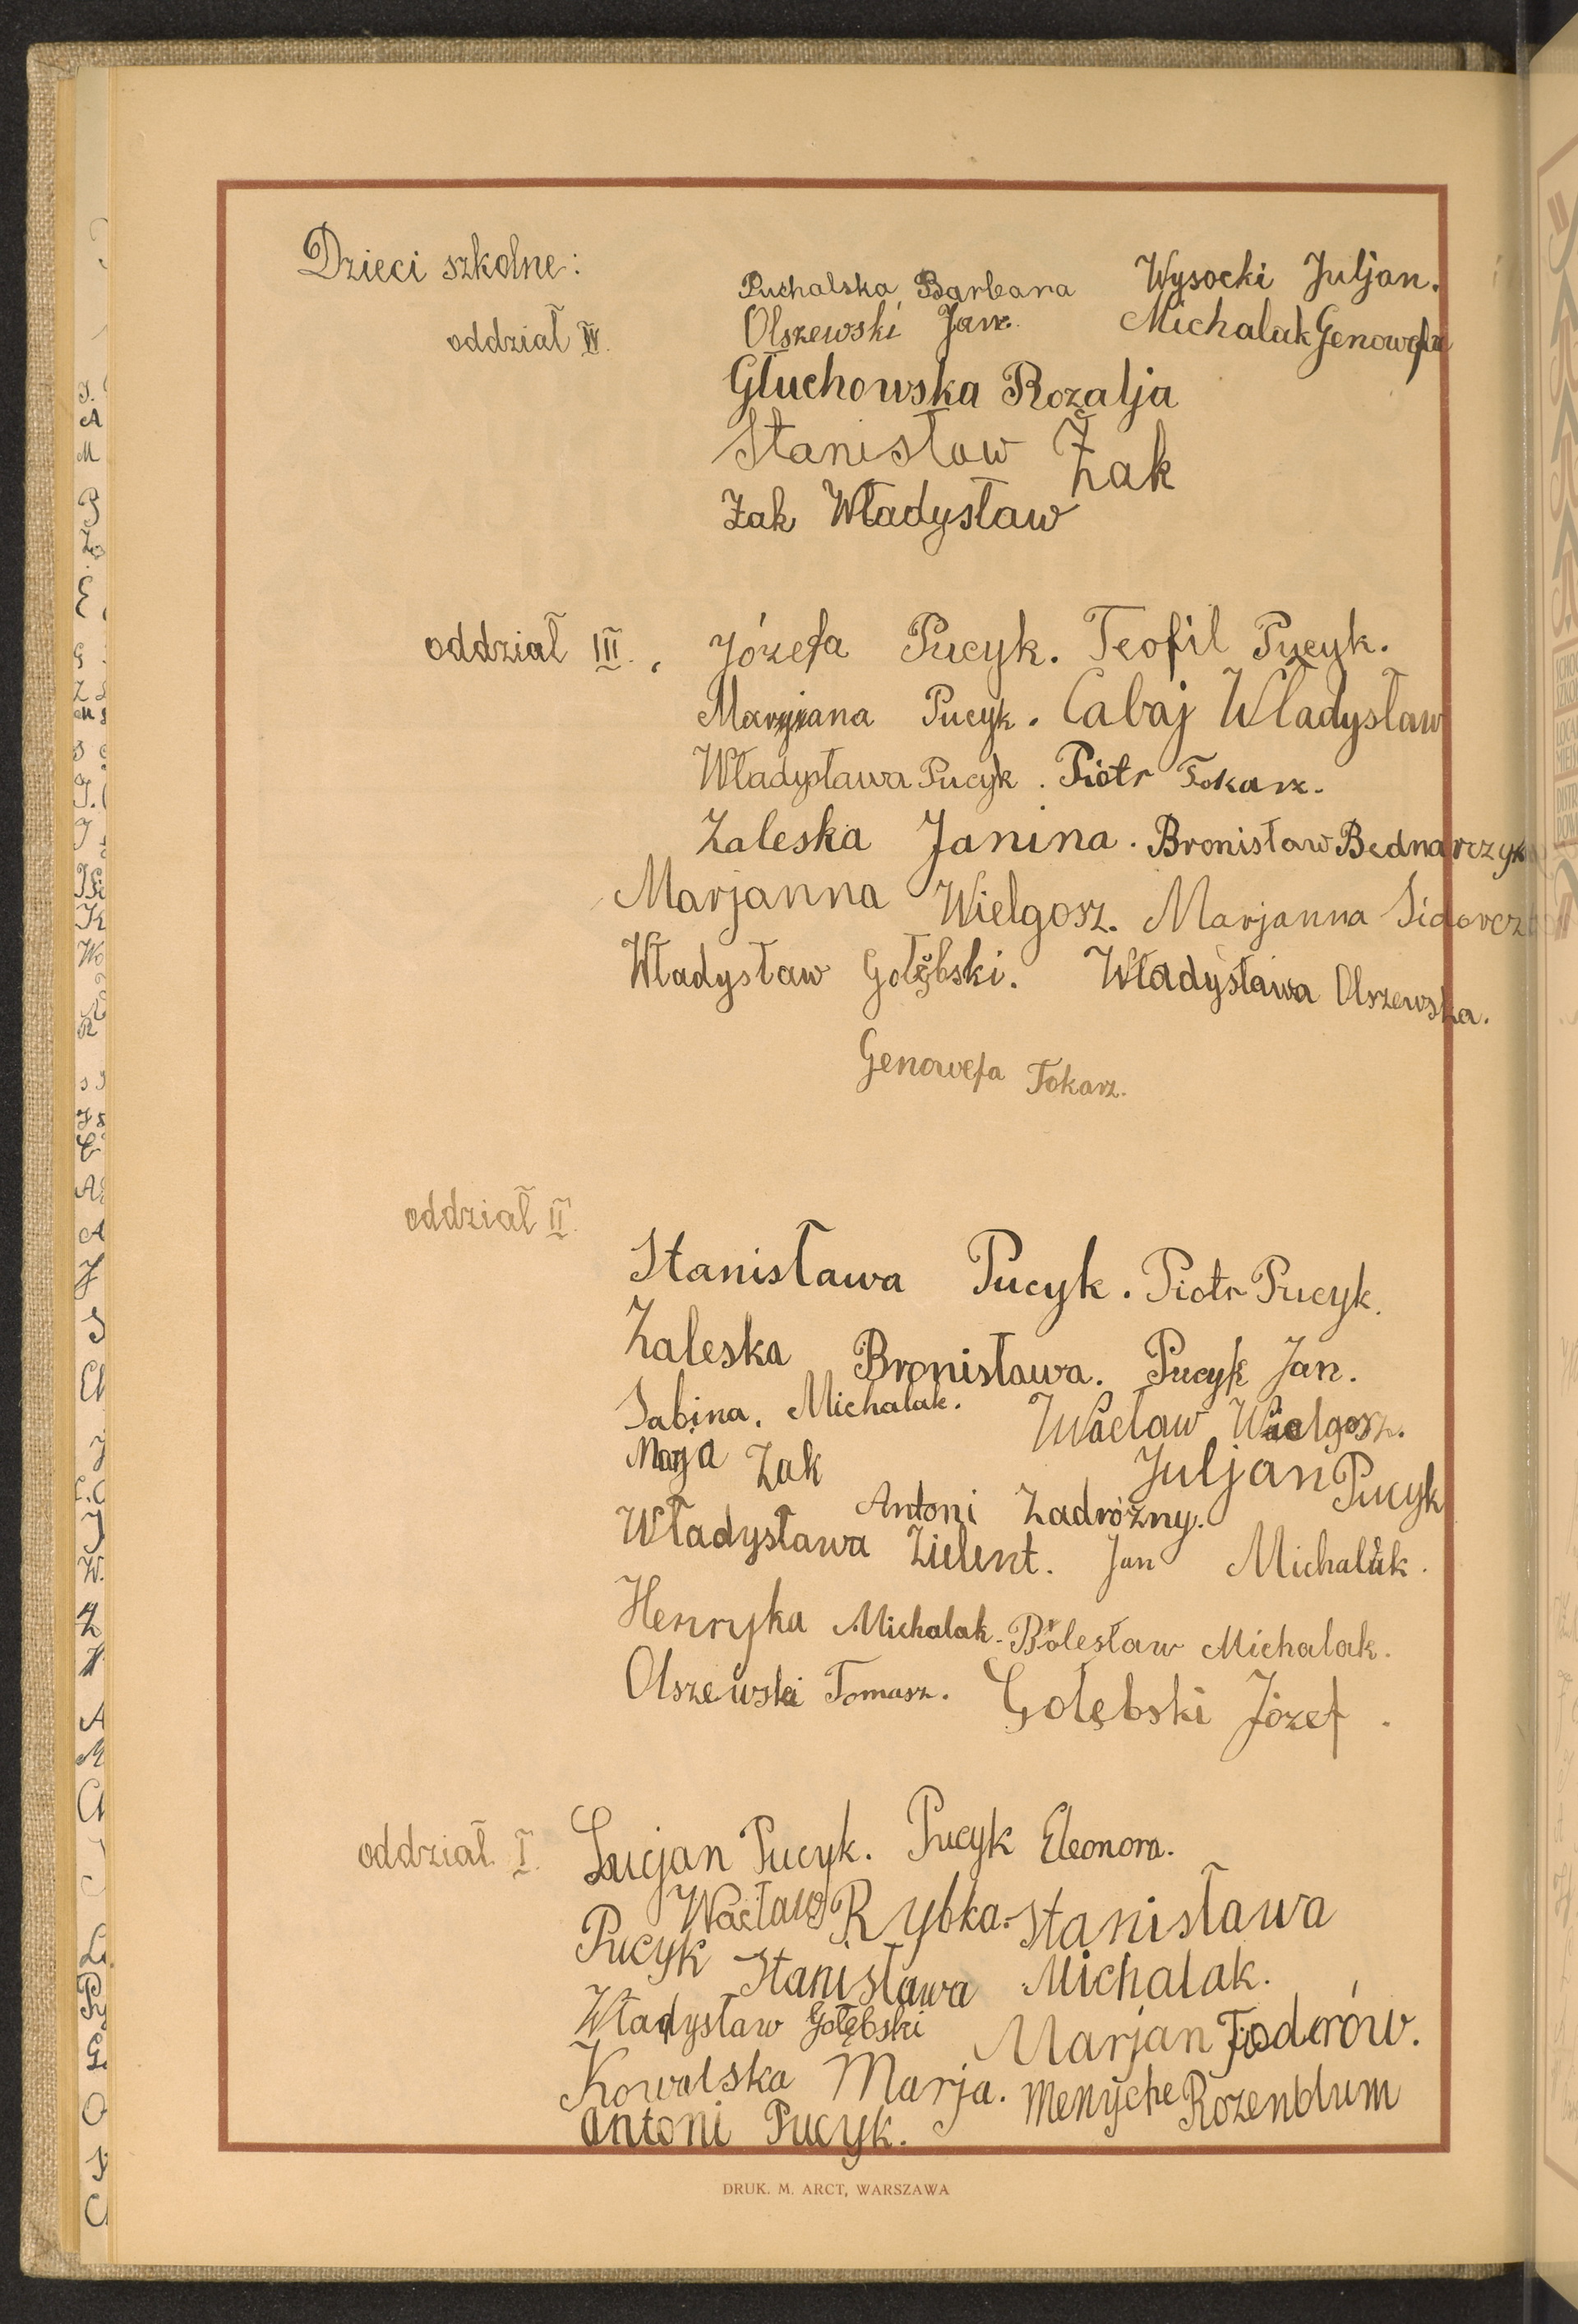 Dzieci szkolne:
oddział IV.
Puchalska Barbara Wysocki Juljan.
Olszewski Jan. Michalak Genowefa
Głuchowska Rozalja
Stanisław Żak
Żak Władysław
oddział III. Józefa Pucyk. Teofil Pucyk.
Marjiana Pucyk. Cabaj Władysław
Władysława Pucyk. Piotr Tokarz.
Zaleska Janina. Bronisław Bednarczyk
Marjanna Wielgosz. Marjanna
Władysław Gołębski. Władysława Olszewska.
Genowefa Tokarz.
oddział II.
Stanisława Pucyk. Piotr Pucyk.
Zaleska Bronisława. Pucyk Jan.
Sabina. Michalak. Wacław Wielgosz.
Marja Żak Juljan Pucyk
Antoni Zadróżny.
Władysława Zielent. Jan Michalak.
Henryka Michalak. Bolesław Michalak.
Olszewski Tomasz. Gołębski Józef.
oddział I. Lucjan Pucyk. Pucyk Eleonora.
Wacław Rybka. Stanisława
Pucyk Stanisława Michalak.
Władysław Gołębski Marjan Fiodorów.
Kowalska Marja. Menyche Rozenblum
Antoni Pucyk.
DRUK. M. ARCT, WARSZAWA